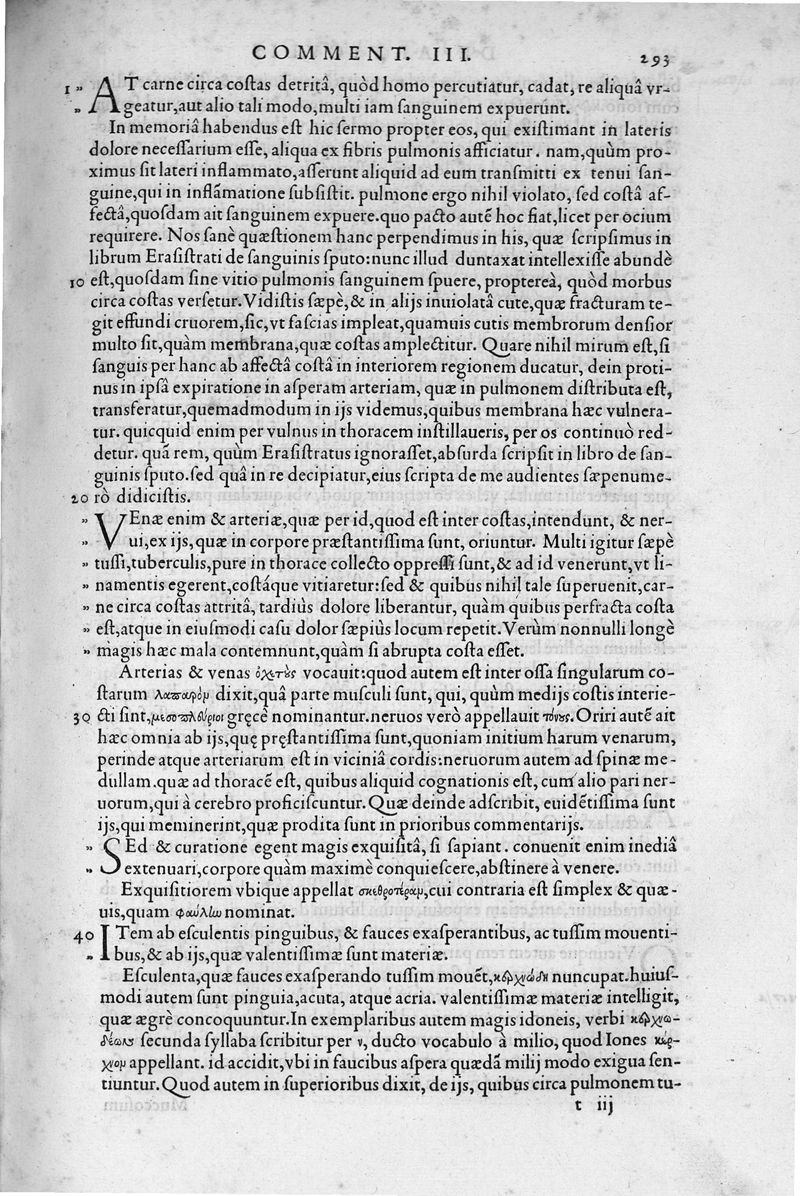 COMMENT. III. 293
1 „ AT carne circa coſtas detritâ, quòd homo percutiatur, cadat, re aliquâ vr-
„ geatur,aut alio tali modo,multi iam ſanguinem expuerunt.
In memoriâ habendus eſt hic ſermo propter eos, qui exiſtimant in lateris
dolore neceſſarium eſſe, aliqua ex fibris pulmonis afficiatur. nam,quùm pro-
ximus ſit lateri inflammato,aſſerunt aliquid ad eum tranſmitti ex tenui ſan-
guine,qui in inflãmatione ſubſiſtit. pulmone ergo nihil violato, ſed coſtâ af-
fectâ,quoſdam ait ſanguinem expuere.quo pacto autẽ hoc fiat,licet per ocium
requirere. Nos ſanè quæſtionem hanc perpendimus in his, quæ ſcripſimus in
librum Eraſiſtrati de ſanguinis ſputo:nunc illud duntaxat intellexiſſe abundè
10 eſt,quoſdam ſine vitio pulmonis ſanguinem ſpuere, propterea, quòd morbus
circa coſtas verſetur.Vidiſtis ſæpè,& in alijs inuiolatâ cute,quæ fracturam te-
git effundi cruorem,ſic,vt faſcias impleat,quamuis cutis membrorum denſior
multo ſit,quàm membrana,quæ coſtas amplectitur. Quare nihil mirum eſt,ſi
ſanguis per hanc ab affectâ coſtâ in interiorem regionem ducatur, dein proti-
nus in ipſâ expiratione in aſperam arteriam, quæ in pulmonem diſtributa eſt,
transferatur,quemadmodum in ijs videmus,quibus membrana hæc vulnera-
tur. quicquid enim per vulnus in thoracem inſtillaueris, per os continuò red-
detur. quã rem, quùm Eraſiſtratus ignoraſſet,abſurda ſcripſit in libro de ſan-
guinis ſputo.ſed quâ in re decipiatur,eius ſcripta de me audientes ſæpenume-
20 rò didiciſtis.
„ VEnæ enim & arteriæ,quæ per id,quod eſt inter coſtas,intendunt, & ner-
„ ui,ex ijs,quæ in corpore præſtantiſſima ſunt, oriuntur. Multi igitur ſæpè
„ tuſſi,tuberculis,pure in thorace collecto oppreſſi ſunt,& ad id venerunt,vt li-
„ namentis egerent,coſtáque vitiaretur:ſed & quibus nihil tale ſuperuenit,car-
„ ne circa coſtas attritâ, tardiùs dolore liberantur, quàm quibus perfracta coſta
„ eſt,atque in eiuſmodi caſu dolor ſæpiùs locum repetit.Verùm nonnulli longè
„ magis hæc mala contemnunt,quàm ſi abrupta coſta eſſet.
Arterias & venas ὀχετὸς vocauit:quod autem eſt inter oſſa ſingularum co-
ſtarum λαπαρὸμ dixit,quâ parte muſculi ſunt, qui, quùm medijs coſtis interie-
30 cti ſint,μεσοπλεύριοι gręcè nominantur.neruos verò appellauit τόνους. Oriri autẽ ait
hæc omnia ab ijs,quę pręſtantiſſima ſunt,quoniam initium harum venarum,
perinde atque arteriarum eſt in viciniâ cordis:neruorum autem ad ſpinæ me-
dullam.quæ ad thoracẽ eſt, quibus aliquid cognationis eſt, cum alio pari ner-
uorum,qui à cerebro proficiſcuntur.Quæ deinde adſcribit, euidẽtiſſima ſunt
ijs,qui meminerint,quæ prodita ſunt in prioribus commentarijs.
„ SEd & curatione egent magis exquiſitâ, ſi ſapiant. conuenit enim inediâ
„ extenuari,corpore quàm maximè conquieſcere,abſtinere à venere.
Exquiſitiorem vbique appellat σκεθροτέραμ,cui contraria eſt ſimplex & quæ-
uis,quam φαύλίω nominat.
40 ITem ab eſculentis pinguibus, & fauces exaſperantibus, ac tuſſim mouenti-
„ bus,& ab ijs,quæ valentiſſimæ ſunt materiæ.
Eſculenta,quæ fauces exaſperando tuſſim mouẽt,κερχνώδη nuncupat.huiuſ-
modi autem ſunt pinguia,acuta, atque acria. valentiſſimæ materiæ intelligit,
quæ ægrè concoquuntur.In exemplaribus autem magis idoneis, verbi κερχνω-
δέων ſecunda ſyllaba ſcribitur per ν, ducto vocabulo à milio, quod Iones κέρ-
χνομ appellant. id accidit,vbi in faucibus aſpera quædã milij modo exigua ſen-
tiuntur.Quod autem in ſuperioribus dixit, de ijs, quibus circa pulmonem tu-
t iij